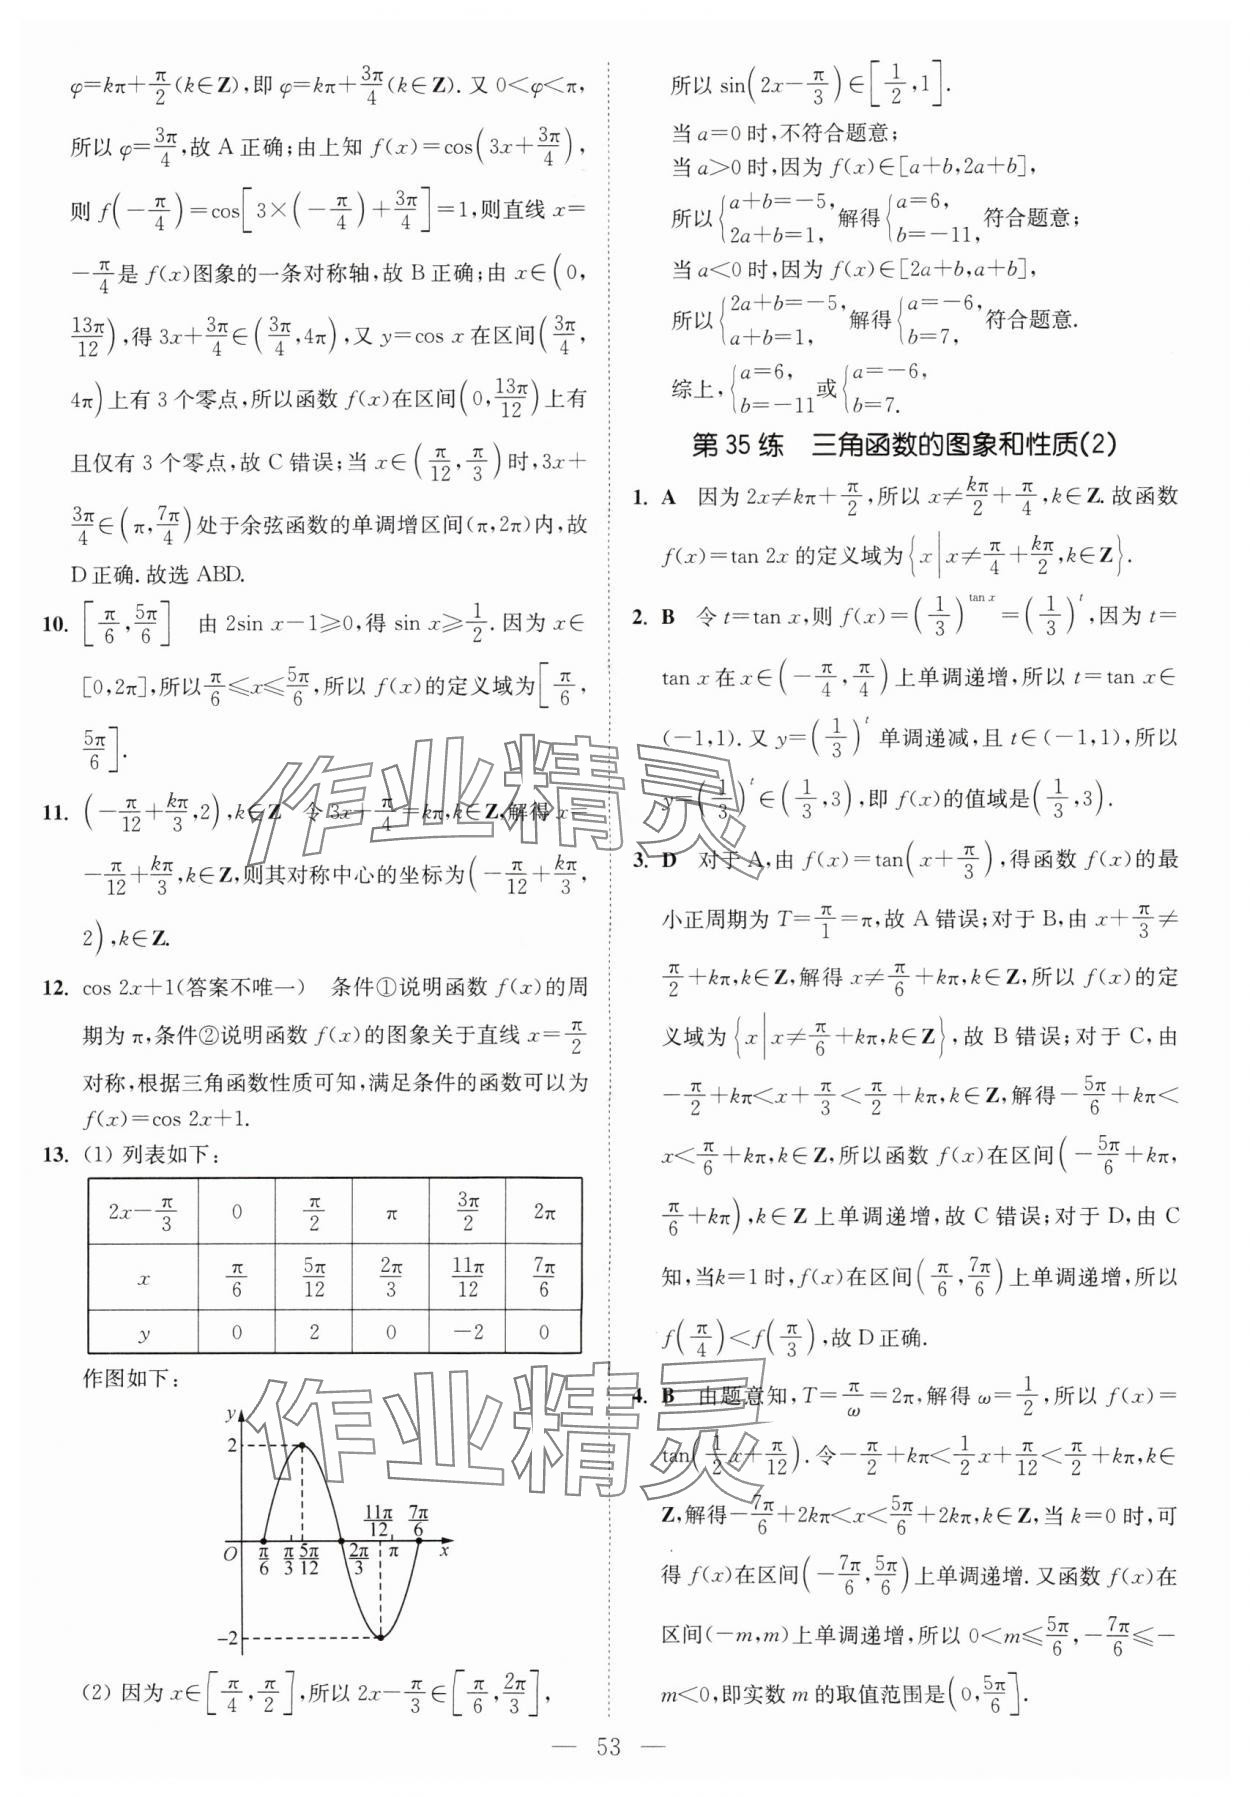 φ=kπ+π/2(k∈Z),即 φ=kπ+3π/4(k∈Z).又 0<φ<π,
所以 φ=3π/4,故 A 正确;由上知 f(x)=cos(3x+3π/4),
则 f(-π/4)=cos[3×(-π/4)+3π/4]=1,则直线 x=
-π/4是 f(x)图象的一条对称轴,故 B 正确;由 x∈(0,
13π/12),得 3x+3π/4∈(3π/4,4π),又 y=cos x 在区间(3π/4,
4π)上有 3 个零点,所以函数 f(x)在区间(0,13π/12)上有
且仅有 3 个零点,故 C 错误;当 x∈(π/12,π/3)时,3x+
3π/4∈(π,7π/4)处于余弦函数的单调增区间(π,2π)内,故
D 正确.故选 ABD.
10. [π/6,5π/6] 由 2sin x-1≥0,得 sin x≥1/2.因为 x∈
[0,2π],所以π/6≤x≤5π/6,所以 f(x)的定义域为[π/6,
5π/6].
11. (-π/12+kπ/3,2),k∈Z 令 3x+π/4=kπ,k∈Z,解得 x=
-π/12+kπ/3,k∈Z,则其对称中心的坐标为(-π/12+kπ/3,
2),k∈Z.
12. cos 2x+1(答案不唯一) 条件①说明函数 f(x)的周
期为 π,条件②说明函数 f(x)的图象关于直线 x=π/2
对称,根据三角函数性质可知,满足条件的函数可以为
f(x)=cos 2x+1.
13. (1) 列表如下:
2x-π/3 0 π/2 π 3π/2 2π
x π/6 5π/12 2π/3 11π/12 7π/6
y 0 2 0 -2 0
作图如下:
y
2
11π/12 7π/6
O π/6 π/3 5π/12 2π/3 π x
-2
(2) 因为 x∈[π/4,π/2],所以 2x-π/3∈[π/6,2π/3],
所以 sin(2x-π/3)∈[1/2,1].
当 a=0 时,不符合题意;
当 a>0 时,因为 f(x)∈[a+b,2a+b],
所以{a+b=-5, 2a+b=1,解得{a=6, b=-11,符合题意;
当 a<0 时,因为 f(x)∈[2a+b,a+b],
所以{2a+b=-5, a+b=1,解得{a=-6, b=7,符合题意.
综上,{a=6, b=-11或{a=-6, b=7.
第 35 练 三角函数的图象和性质(2)
1. A 因为 2x≠kπ+π/2,所以 x≠kπ/2+π/4,k∈Z.故函数
f(x)=tan 2x 的定义域为{x|x≠π/4+kπ/2,k∈Z}.
2. B 令 t=tan x,则 f(x)=(1/3)^tan x=(1/3)^t,因为 t=
tan x 在 x∈(-π/4,π/4)上单调递增,所以 t=tan x∈
(-1,1).又 y=(1/3)^t 单调递减,且 t∈(-1,1),所以
y=(1/3)^t∈(1/3,3),即 f(x)的值域是(1/3,3).
3. D 对于 A,由 f(x)=tan(x+π/3),得函数 f(x)的最
小正周期为 T=π/1=π,故 A 错误;对于 B,由 x+π/3≠
π/2+kπ,k∈Z,解得 x≠π/6+kπ,k∈Z,所以 f(x)的定
义域为{x|x≠π/6+kπ,k∈Z},故 B 错误;对于 C,由
-π/2+kπ<x+π/3<π/2+kπ,k∈Z,解得-5π/6+kπ<
x<π/6+kπ,k∈Z,所以函数 f(x)在区间(-5π/6+kπ,
π/6+kπ),k∈Z 上单调递增,故 C 错误;对于 D,由 C
知,当k=1 时,f(x)在区间(π/6,7π/6)上单调递增,所以
f(π/4)<f(π/3),故 D 正确.
4. B 由题意知,T=π/ω=2π,解得 ω=1/2,所以 f(x)=
tan(1/2x+π/12).令-π/2+kπ<1/2x+π/12<π/2+kπ,k∈
Z,解得-7π/6+2kπ<x<5π/6+2kπ,k∈Z,当 k=0 时,可
得 f(x)在区间(-7π/6,5π/6)上单调递增.又函数 f(x)在
区间(-m,m)上单调递增,所以 0<m≤5π/6,-7π/6≤-
m<0,即实数 m 的取值范围是(0,5π/6].
— 53 —
作业精灵
作业精灵